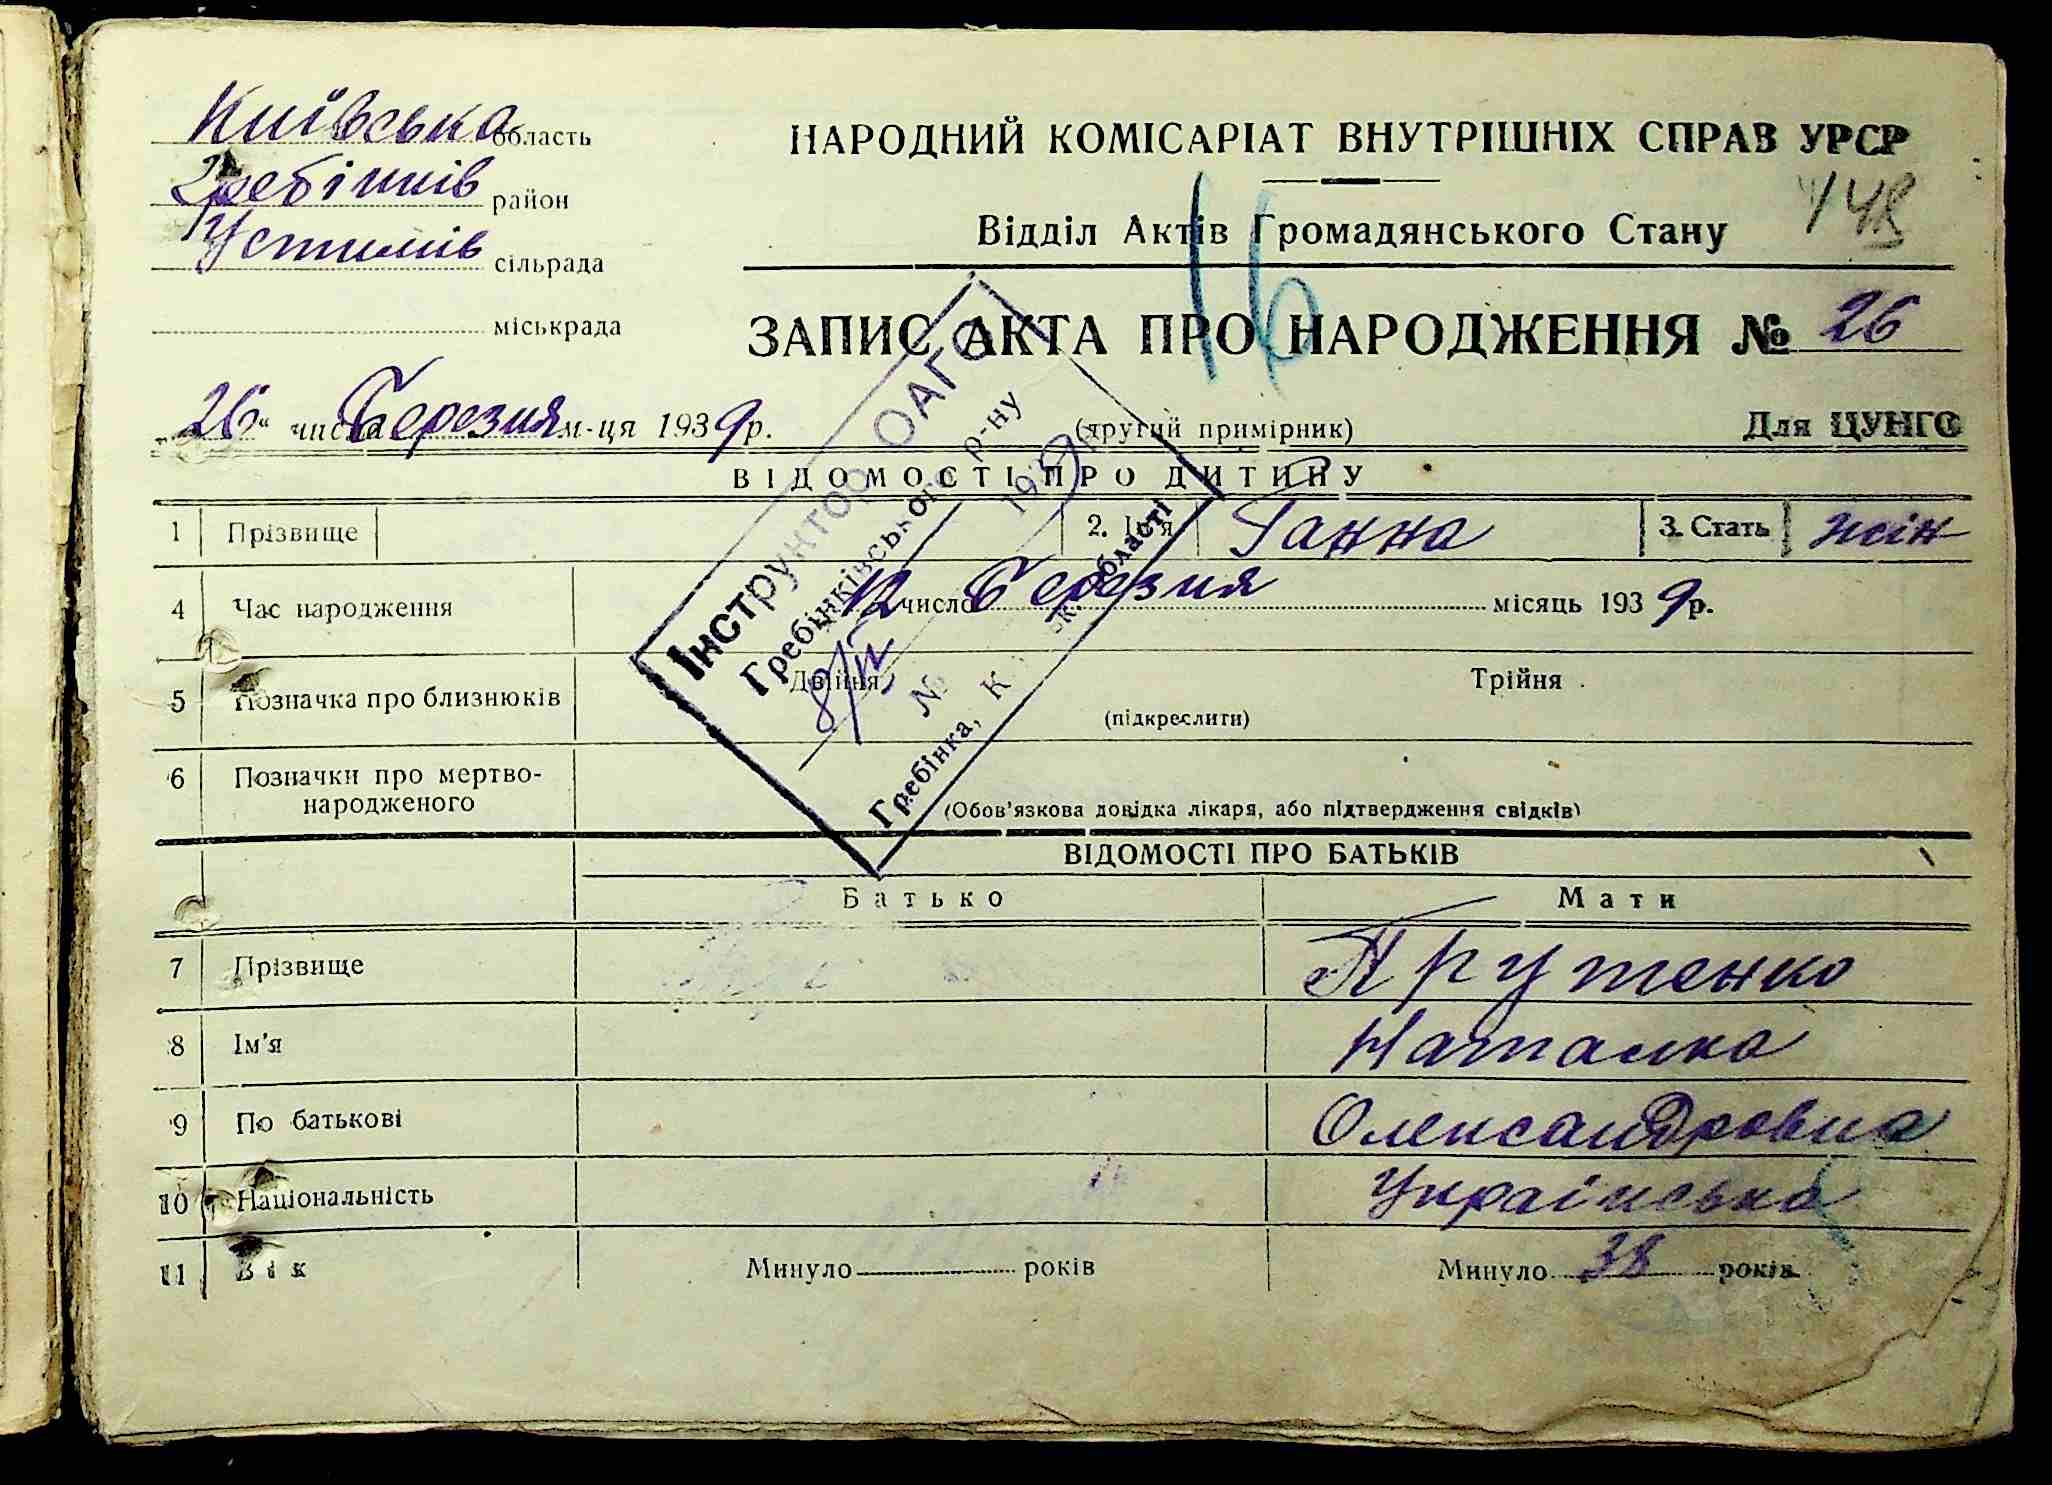 Київська область
Гребінків район
Устимів сільрада
міськрада
НАРОДНИЙ КОМІСАРІАТ ВНУТРІШНІХ СПРАВ УРСР
148
Відділ Актів Громадянського Стану
16
ЗАПИС АКТА ПРО НАРОДЖЕННЯ № 26
„26“ числа Березня м-ця 1939 р.
(другий примірник)
Для ЦУНГО
ВІДОМОСТІ ПРО ДИТИНУ
1 Прізвище 2. Ім'я Ганна 3. Стать жін
4 Час народження 12 число Березня місяць 1939 р.
5 Позначка про близнюків Двійня Трійня
(підкреслити)
6 Позначки про мертво-
народженого
(Обов'язкова довідка лікаря, або підтвердження свідків)
Інструктор ОАГС
Гребінківського р-ну
8/IV 1939
№
Гребінка, К ськ. області
ВІДОМОСТІ ПРО БАТЬКІВ
Батько Мати
7 Прізвище Прутенко
8 Ім'я Наталка
9 По батькові Олександровна
10 Національність Українська
11 Вік Минуло років Минуло 38 років